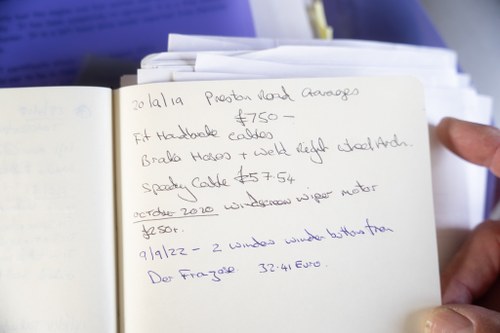 20/9/19 Preston Road Garages
£750 —
Fit Handbrake Cables
Brake Hoses + Weld Right Wheel Arch.
Speedy Cable £57.54
October 2020 Windscreen wiper motor
£250.
9/9/22 - 2 window winder buttons from
Der Franzose 32.41 Euro.